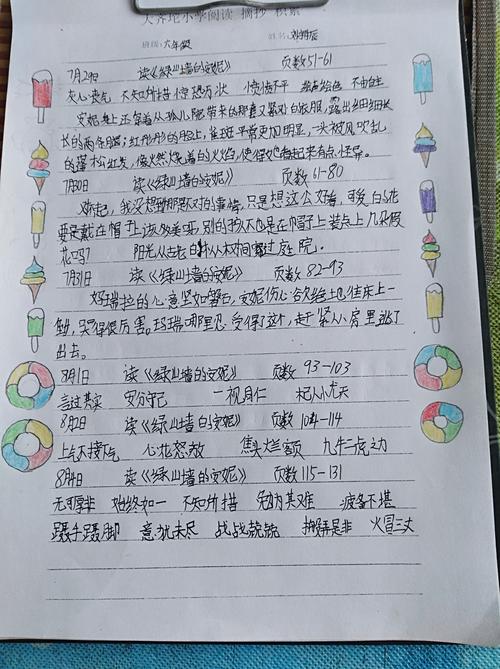 大齐坨小学阅读 摘抄 积累
班级：六年级 姓名：
7月29 读《绿山墙的安妮》 页数51-61
灰心丧气 不知所措 惊恐万状 愤愤不平 绘声绘色 不由自主
安妮身上还穿着从孤儿院带来的那套又紧又小的衣服，露出细细长
长的两条腿；红彤彤的脸上，雀斑平常更加明显，一头被风吹乱
的蓬松红发，像燃烧着的火焰，使得她看起来有点怪异。
7月30 读《绿山墙的安妮》 页数61-80
对不起，我没想到那是不对的事情，只是想这么好看，可爱的花
要是戴在帽子上该多美呀，别的孩子不也是在帽子上装点上几朵假
花吗？ 阳光从古老的林木间穿过庭院。
7月31 读《绿山墙的安妮》 页数82-93
好瑞拉的心意坚如磐石，安妮伤心欲绝地往床上一
躺，哭得很厉害。玛瑞哪里忍受得了这个，赶紧从小房里逃了
出去。
8月1 读《绿山墙的安妮》 页数93-103
言过其实 安分守己 一视同仁 杞人忧天
8月2 读《绿山墙的安妮》 页数104-114
上气不接下气 心花怒放 焦头烂额 九牛二虎之力
8月4 读《绿山墙的安妮》 页数115-131
无可厚非 始终如一 不知所措 勉为其难 疲备不堪
蹑手蹑脚 意犹未尽 战战兢兢 搬弄是非 火冒三丈